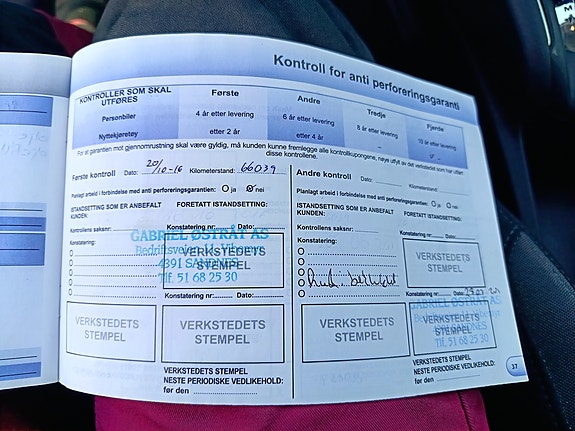 Kontroll for anti perforeringsgaranti
KONTROLLER SOM SKAL UTFØRES
Første
Andre
Tredje
Fjerde
Personbiler
4 år etter levering
6 år etter levering
8 år etter levering
10 år etter levering
Nyttekjøretøy
etter 2 år
etter 4 år
For at garantien mot gjennomrustning skal være gyldig, må kunden kunne fremlegge alle kontrollkupongene, nøye utfylt av det verkstedet som har utført
disse kontrollene.
Første kontroll Dato: 20/10-16 Kilometerstand: 66039
Planlagt arbeid i forbindelse med anti perforeringsgarantien: ja nei
INNSTANDSETTING SOM ER ANBEFALT KUNDEN:
FORETATT ISTANDSETTING:
Kontrollens saksnr:
Konstatering nr: Dato:
Konstatering:
VERKSTEDETS STEMPEL
GABRIEL ØSTRÅT AS
4391 SANDNES
Tlf. 51 68 25 30
Konstatering nr: Dato:
VERKSTEDETS STEMPEL
VERKSTEDETS STEMPEL
VERKSTEDETS STEMPEL
NESTE PERIODISKE VEDLIKEHOLD:
før den
Andre kontroll Dato: Kilometerstand:
Planlagt arbeid i forbindelse med anti perforeringsgarantien: ja nei
ISTANDSETTING SOM ER ANBEFALT KUNDEN:
FORETATT ISTANDSETTING:
Kontrollens saksnr:
Konstatering nr: Dato:
Konstatering:
VERKSTEDETS STEMPEL
Konstatering nr: Dato:
VERKSTEDETS STEMPEL
VERKSTEDETS STEMPEL
GABRIEL ØSTRÅT AS
SANDNES
Tlf. 51 68 25 30
VERKSTEDETS STEMPEL
NESTE PERIODISKE VEDLIKEHOLD:
før den
37